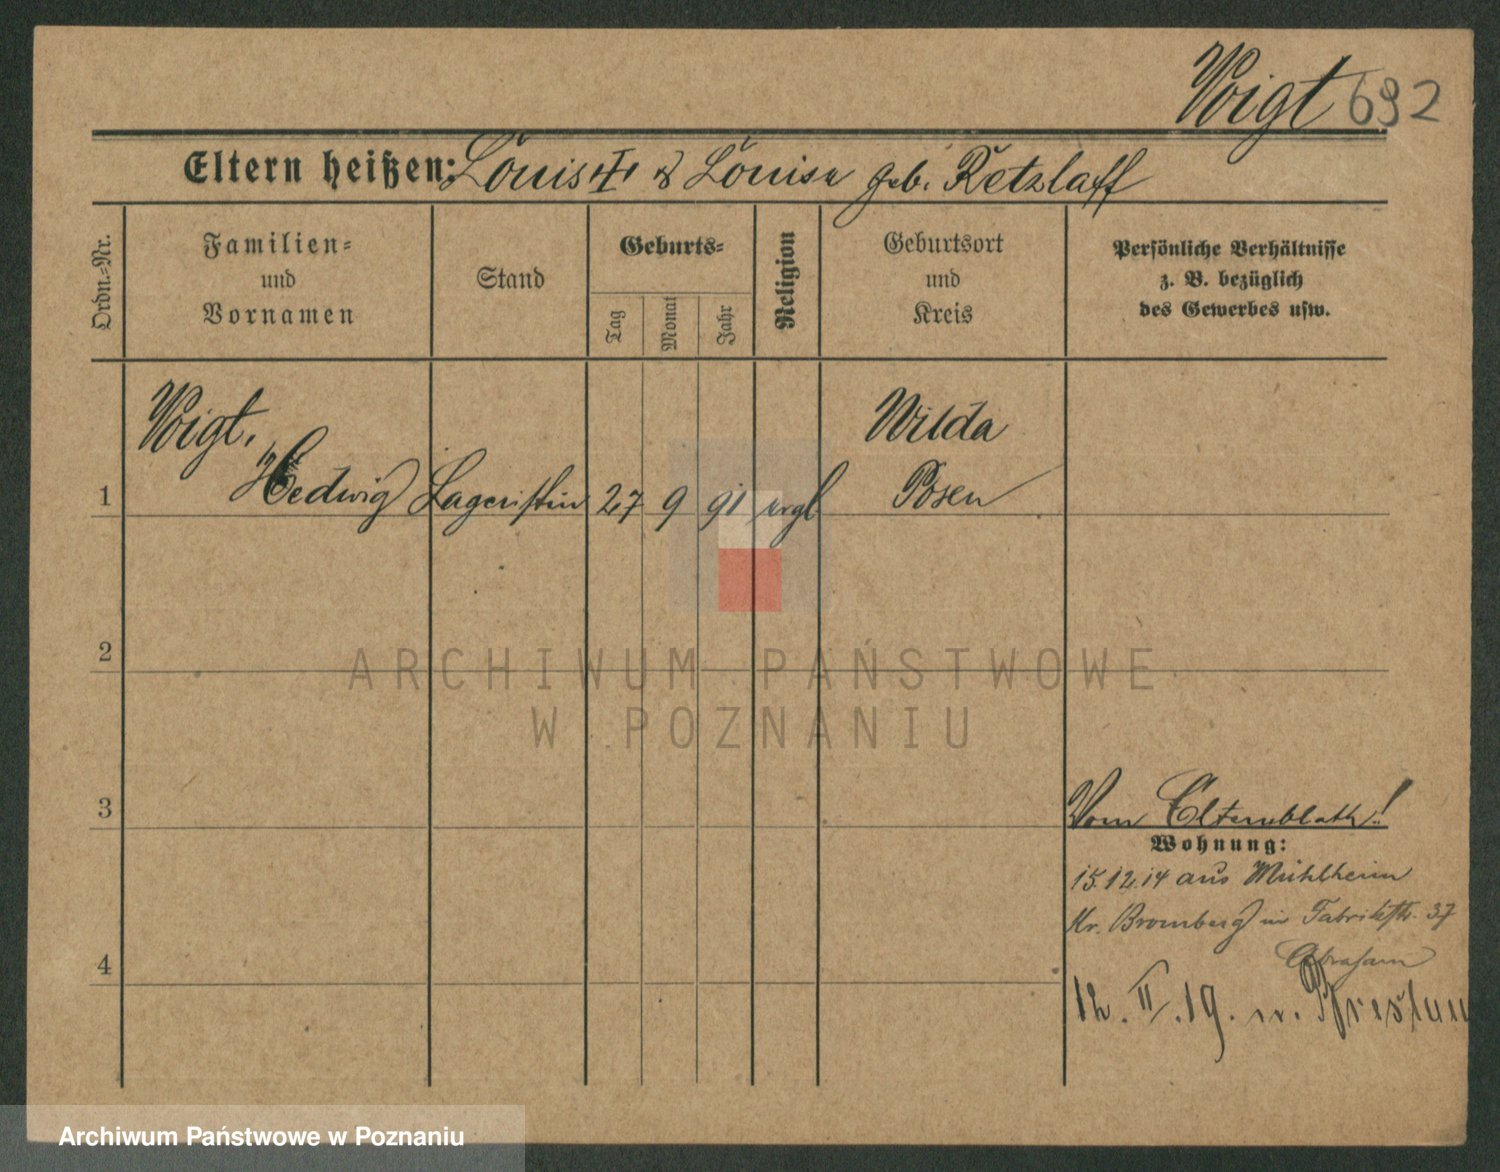 Voigt 692
Eltern heißen: Louis & Louise geb. Retzlaff
Ordn.-Nr.
Familien-
und
Vornamen
Stand
Geburts-
Tag
Monat
Jahr
Religion
Geburtsort
und
Kreis
Persönliche Verhältnisse
z. B. bezüglich
des Gewerbes usw.
Voigt,
Hedwig
Lageristin
27
9
91
evgl
Wilda
Posen
1
2
ARCHIWUM PAŃSTWOWE
W POZNANIU
3
Vom Elternblatt!
Wohnung:
15.12.14 aus Mühlheim
Kr. Bromberg in Fabrikstr. 37
Abraham
4
12. II. 19. n. Breslau
Archiwum Państwowe w Poznaniu